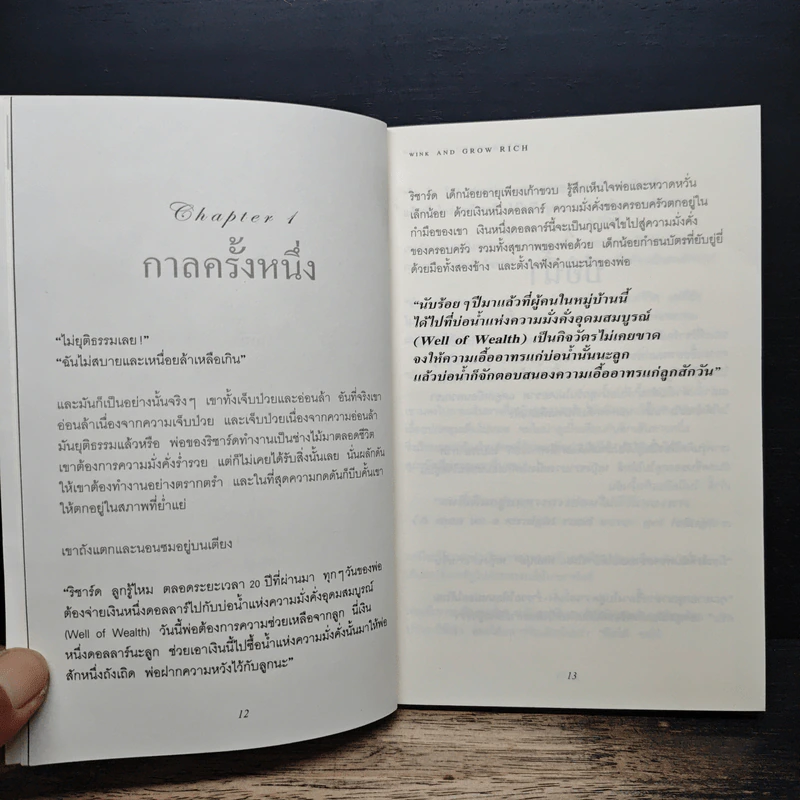 Chapter 1
กาลครั้งหนึ่ง
“ไม่ยุติธรรมเลย!”
“ฉันไม่สบายและเหนื่อยล้าเหลือเกิน”
และมันก็เป็นอย่างนั้นจริงๆ เขาทั้งเจ็บป่วยและอ่อนล้า อันที่จริงเขา
อ่อนล้าเนื่องจากความเจ็บป่วย และเจ็บป่วยเนื่องจากความอ่อนล้า
มันยุติธรรมแล้วหรือ พ่อของริชาร์ดทำงานเป็นช่างไม้มาตลอดชีวิต
เขาต้องการความมั่งคั่งร่ำรวย แต่ก็ไม่เคยได้รับสิ่งนั้นเลย นั่นผลักดัน
ให้เขาต้องทำงานอย่างตรากตรำ และในที่สุดความกดดันก็บีบคั้นเขา
ให้ตกอยู่ในสภาพที่ย่ำแย่
เขาถังแตกและนอนซมอยู่บนเตียง
“ริชาร์ด ลูกรู้ไหม ตลอดระยะเวลา 20 ปีที่ผ่านมา ทุกๆวันของพ่อ
ต้องจ่ายเงินหนึ่งดอลลาร์ไปกับบ่อน้ำแห่งความมั่งคั่งอุดมสมบูรณ์
(Well of Wealth) วันนี้พ่อต้องการความช่วยเหลือจากลูก นี่เงิน
หนึ่งดอลลาร์นะลูก ช่วยเอาเงินนี้ไปซื้อน้ำแห่งความมั่งคั่งนั้นมาให้พ่อ
สักหนึ่งถังเถิด พ่อฝากความหวังไว้กับลูกนะ”
12
WINK AND GROW RICH
ริชาร์ด เด็กน้อยอายุเพียงเก้าขวบ รู้สึกเห็นใจพ่อและหวาดหวั่น
เล็กน้อย ด้วยเงินหนึ่งดอลลาร์ ความมั่งคั่งของครอบครัวตกอยู่ใน
กำมือของเขา เงินหนึ่งดอลลาร์นี้จะเป็นกุญแจไขไปสู่ความมั่งคั่ง
ของครอบครัว รวมทั้งสุขภาพของพ่อด้วย เด็กน้อยกำธนบัตรที่ยับยู่ยี่
ด้วยมือทั้งสองข้าง และตั้งใจฟังคำแนะนำของพ่อ
“นับร้อยๆปีมาแล้วที่ผู้คนในหมู่บ้านนี้
ได้ไปที่บ่อน้ำแห่งความมั่งคั่งอุดมสมบูรณ์
(Well of Wealth) เป็นกิจวัตรไม่เคยขาด
จงให้ความเอื้ออาทรแก่บ่อน้ำนั้นนะลูก
แล้วบ่อน้ำก็จักตอบสนองความเอื้ออาทรแก่ลูกสักวัน”
13